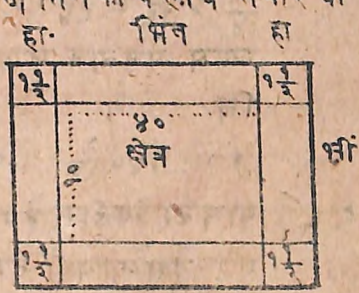 हा. भिंत हा
१ १/२ १ १/२
४०
क्षेत्र भीं
१०
१ १/२ १ १/२